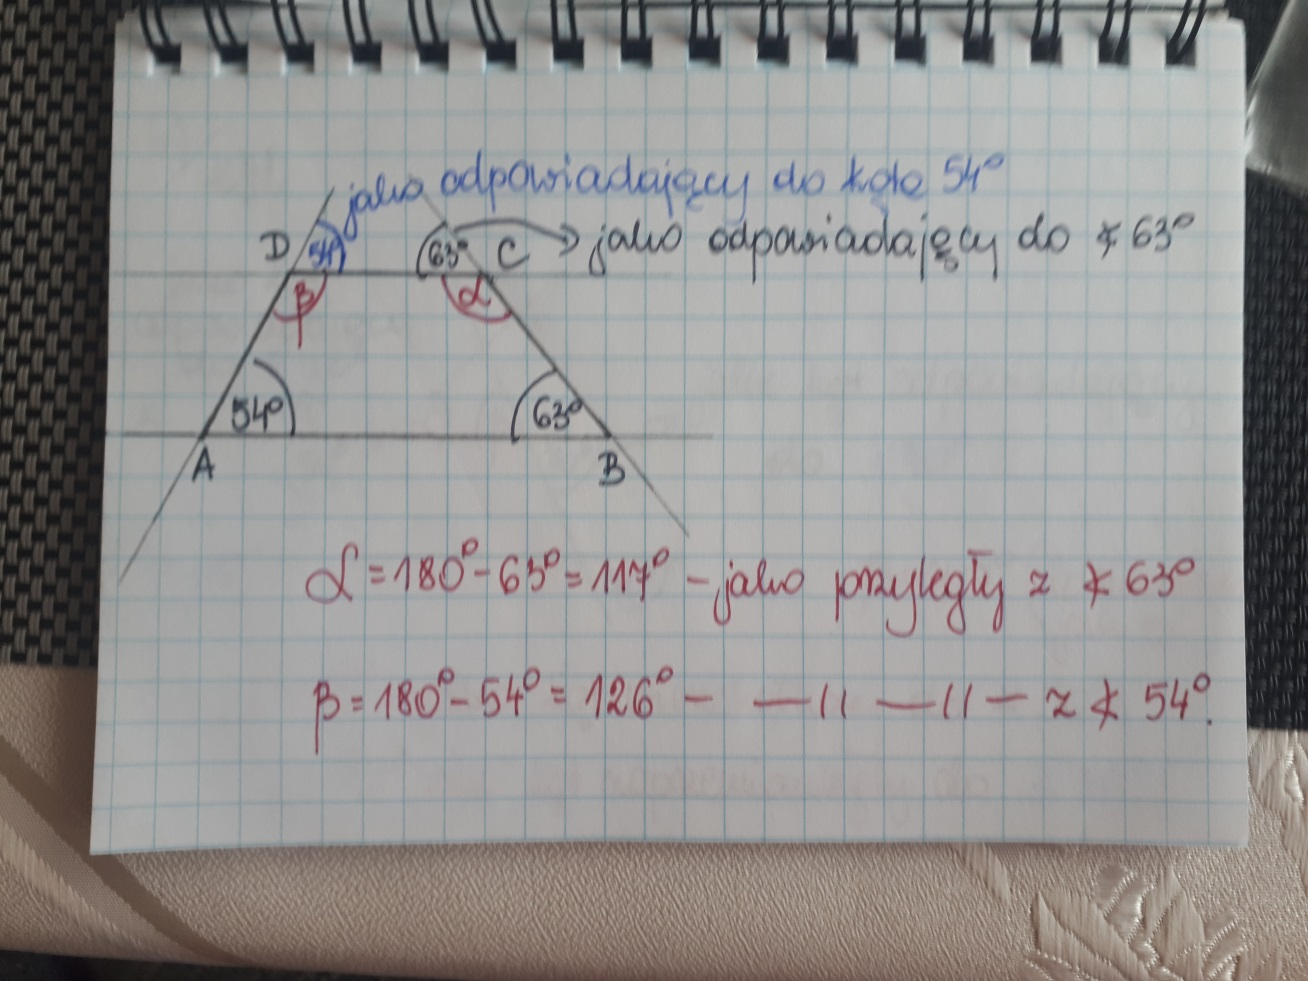 jako odpowiadający do kąta 54°
D 54° 63° C → jako odpowiadający do ∡ 63°
β α
54° 63°
A B
α = 180° - 63° = 117° - jako przyległy z ∡ 63°
β = 180° - 54° = 126° - —||—||— z ∡ 54°.